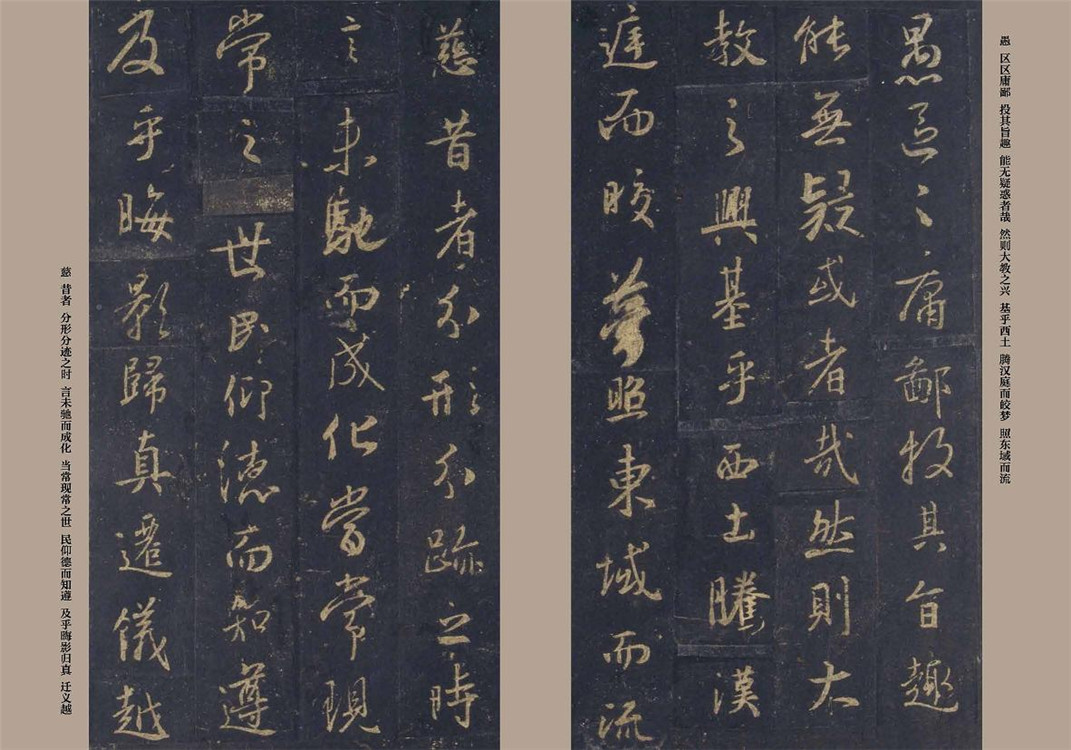 愚 区区庸鄙 投其旨趣 能无疑惑者哉 然则大教之兴 基乎西土 腾汉庭而皎梦 照东域而流
愚區々庸鄙投其旨趣
能無疑或者哉然則大
教之興基乎西土騰漢
庭而皎夢照東域而流
慈昔者分形分跡之時
言未馳而成化當常現
常之世民仰德而知遵
及乎晦影歸真遷儀越
慈 昔者 分形分迹之时 言未驰而成化 当常现常之世 民仰德而知遵 及乎晦影归真 迁义越